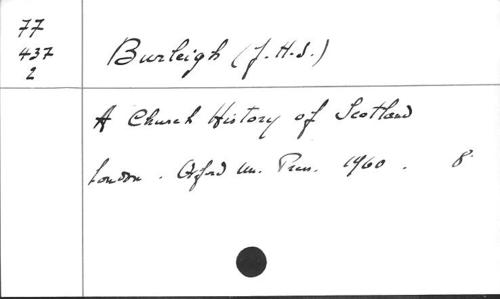 77
437
2
Burleigh (J.H.S.)
A Church History of Scotland
London. Oxford Un. Press. 1960. 8°